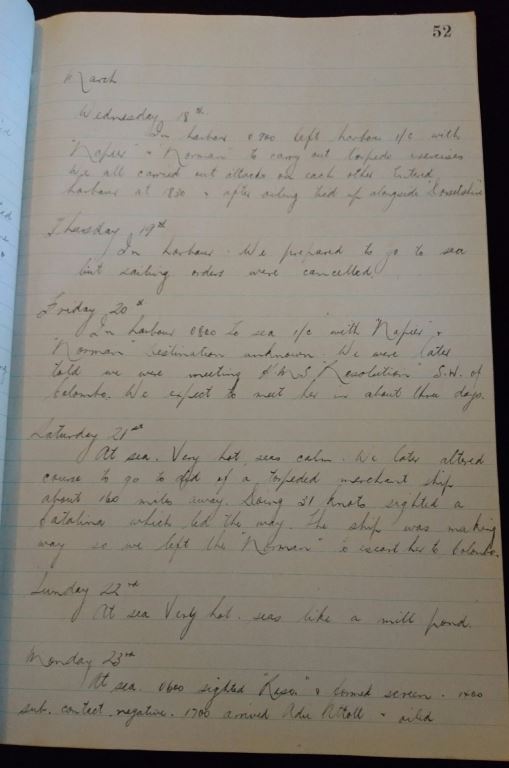 52
March
Wednesday 18th
In harbour 0700 left harbour i/c with
"Napier" & "Norman" to carry out torpedo exercises
We all carried out attacks on each other. Entered
harbour at 1830 & after oiling tied up alongside "Dorsetshire"
Thursday 19th
In harbour. We prepared to go to sea
but sailing orders were cancelled.
Friday 20th
In harbour 0800 to sea i/c with "Napier" &
"Norman" destination unknown. We were later
told we were meeting H.M.S "Resolution" S.W. of
Colombo. We expect to meet her in about three days.
Saturday 21st
At sea. Very hot, seas calm. We later altered
course to go to aid of a torpedoed merchant ship
about 160 miles away. Doing 21 knots sighted a
Catalina which led the way. The ship was making
way so we left the "Norman" to escort her to Colombo.
Sunday 22nd
At sea Very hot. seas like a mill pond.
Monday 23rd
At sea. 0600 sighted & formed screen. 1400
sub. contact negative. 1700 arrived Adu Attoll & oiled